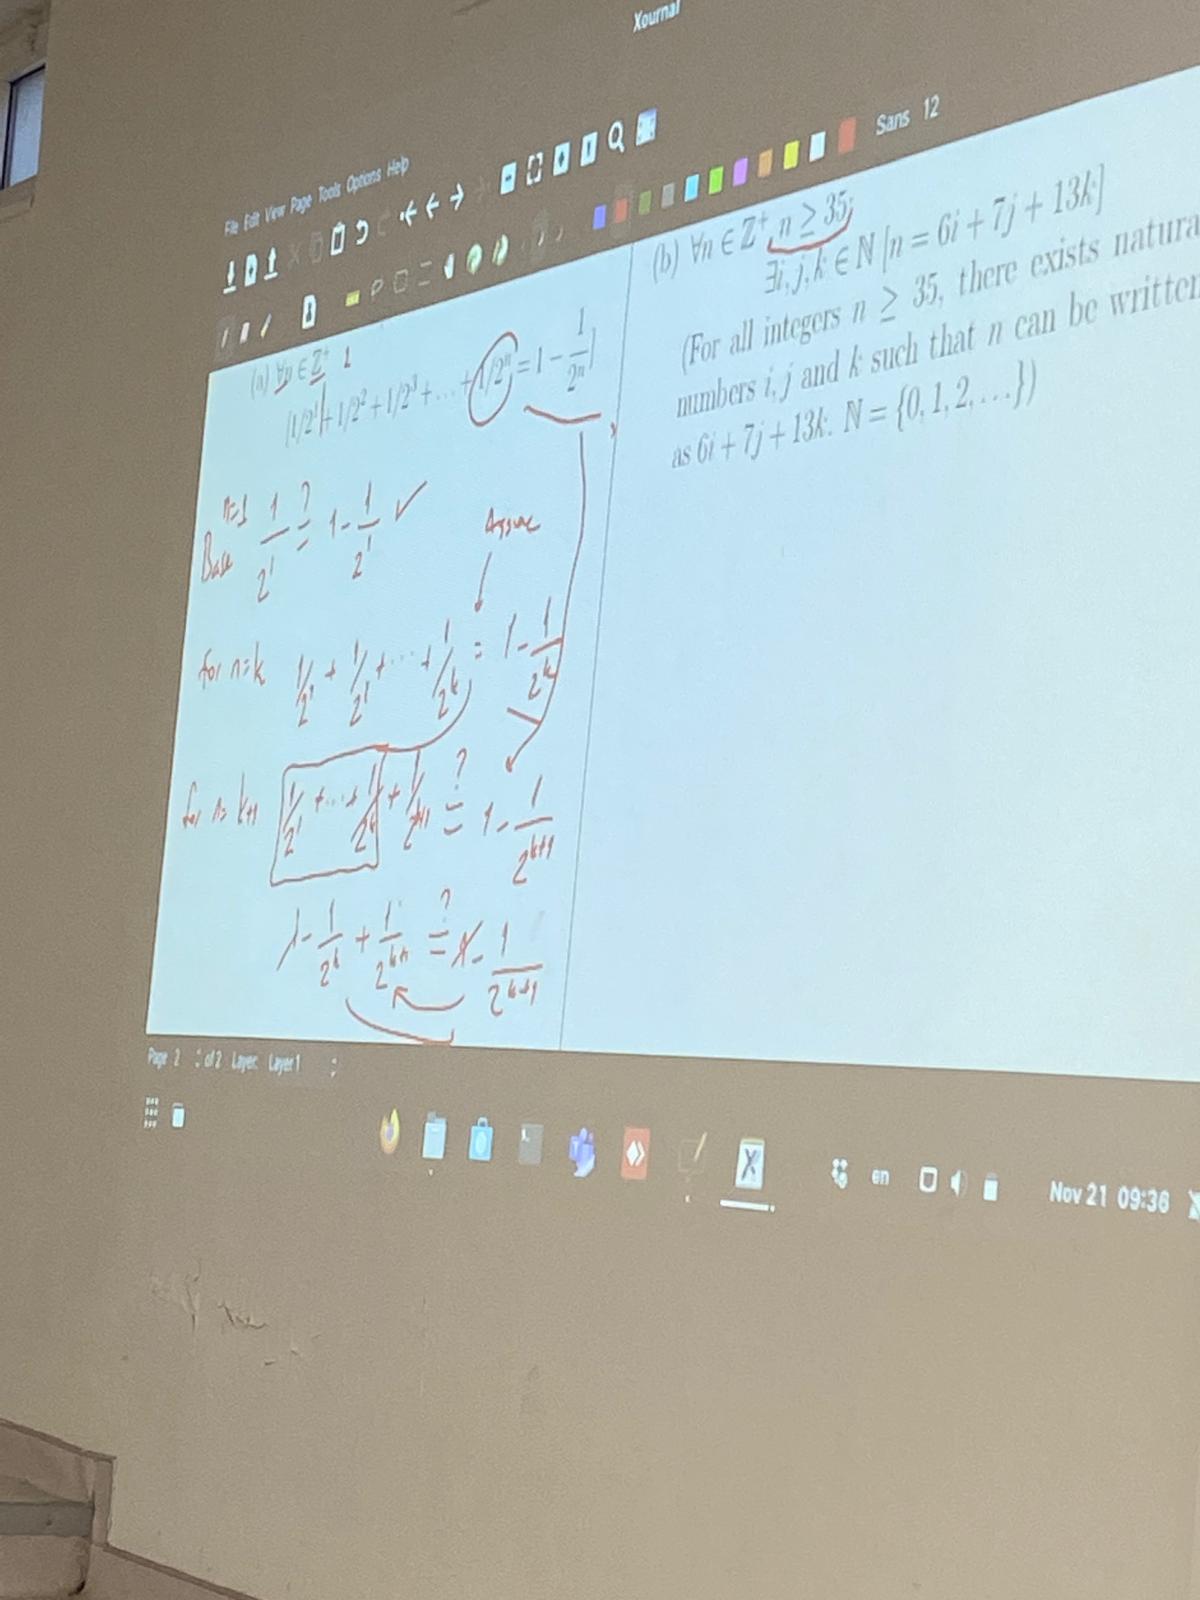 Xournal
File Edit View Page Tools Options Help
Sans 12
(a) ∀n ∈ Z⁺ 1
[1/2¹ + 1/2² + 1/2³ + … + 1/2ⁿ = 1 − 1/2ⁿ]
n=1
Base 1/2¹ ?= 1 - 1/2¹ ✓
Assume
for n=k 1/2¹ + 1/2¹ + ... + 1/2ᵏ = 1 - 1/2ᵏ
for n= k+1 1/2¹ + ... + 1/2ᵏ + 1/2ᵏ⁺¹ ?= 1 - 1/2ᵏ⁺¹
1 - 1/2ᵏ + 1/2ᵏ⁺¹ ?= 1 - 1/2ᵏ⁺¹
(b) ∀n ∈ Z⁺, n ≥ 35,
∃i, j, k ∈ N [n = 6i + 7j + 13k]
(For all integers n ≥ 35, there exists natura
numbers i, j and k such that n can be written
as 6i + 7j + 13k. N = {0, 1, 2, …})
Page 2 of 2 Layer: Layer 1
X
en
Nov 21 09:36